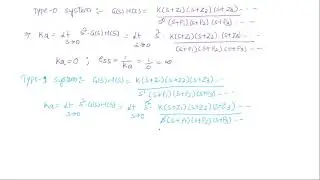 Type-0 system:- G(s)H(s) = K(s+z1)(s+z2)(s+z3) ---
(s+P1)(s+P2)(s+P3) ---
⇒ Ka = Lt s→0 s²·G(s)H(s) = Lt s→0 s² K(s+z1)(s+z2)(s+z3) ---
(s+P1)(s+P2)(s+P3) ---
Ka = 0 ; ess = 1/Ka = 1/0 = ∞
Type-1 system:- G(s)H(s) = K(s+z1)(s+z2)(s+z3) ---
s¹(s+P1)(s+P2)(s+P3) ---
Ka = Lt s→0 s²·G(s)H(s) = Lt s→0 s² K(s+z1)(s+z2)(s+z3) ---
s(s+P1)(s+P2)(s+P3) ---